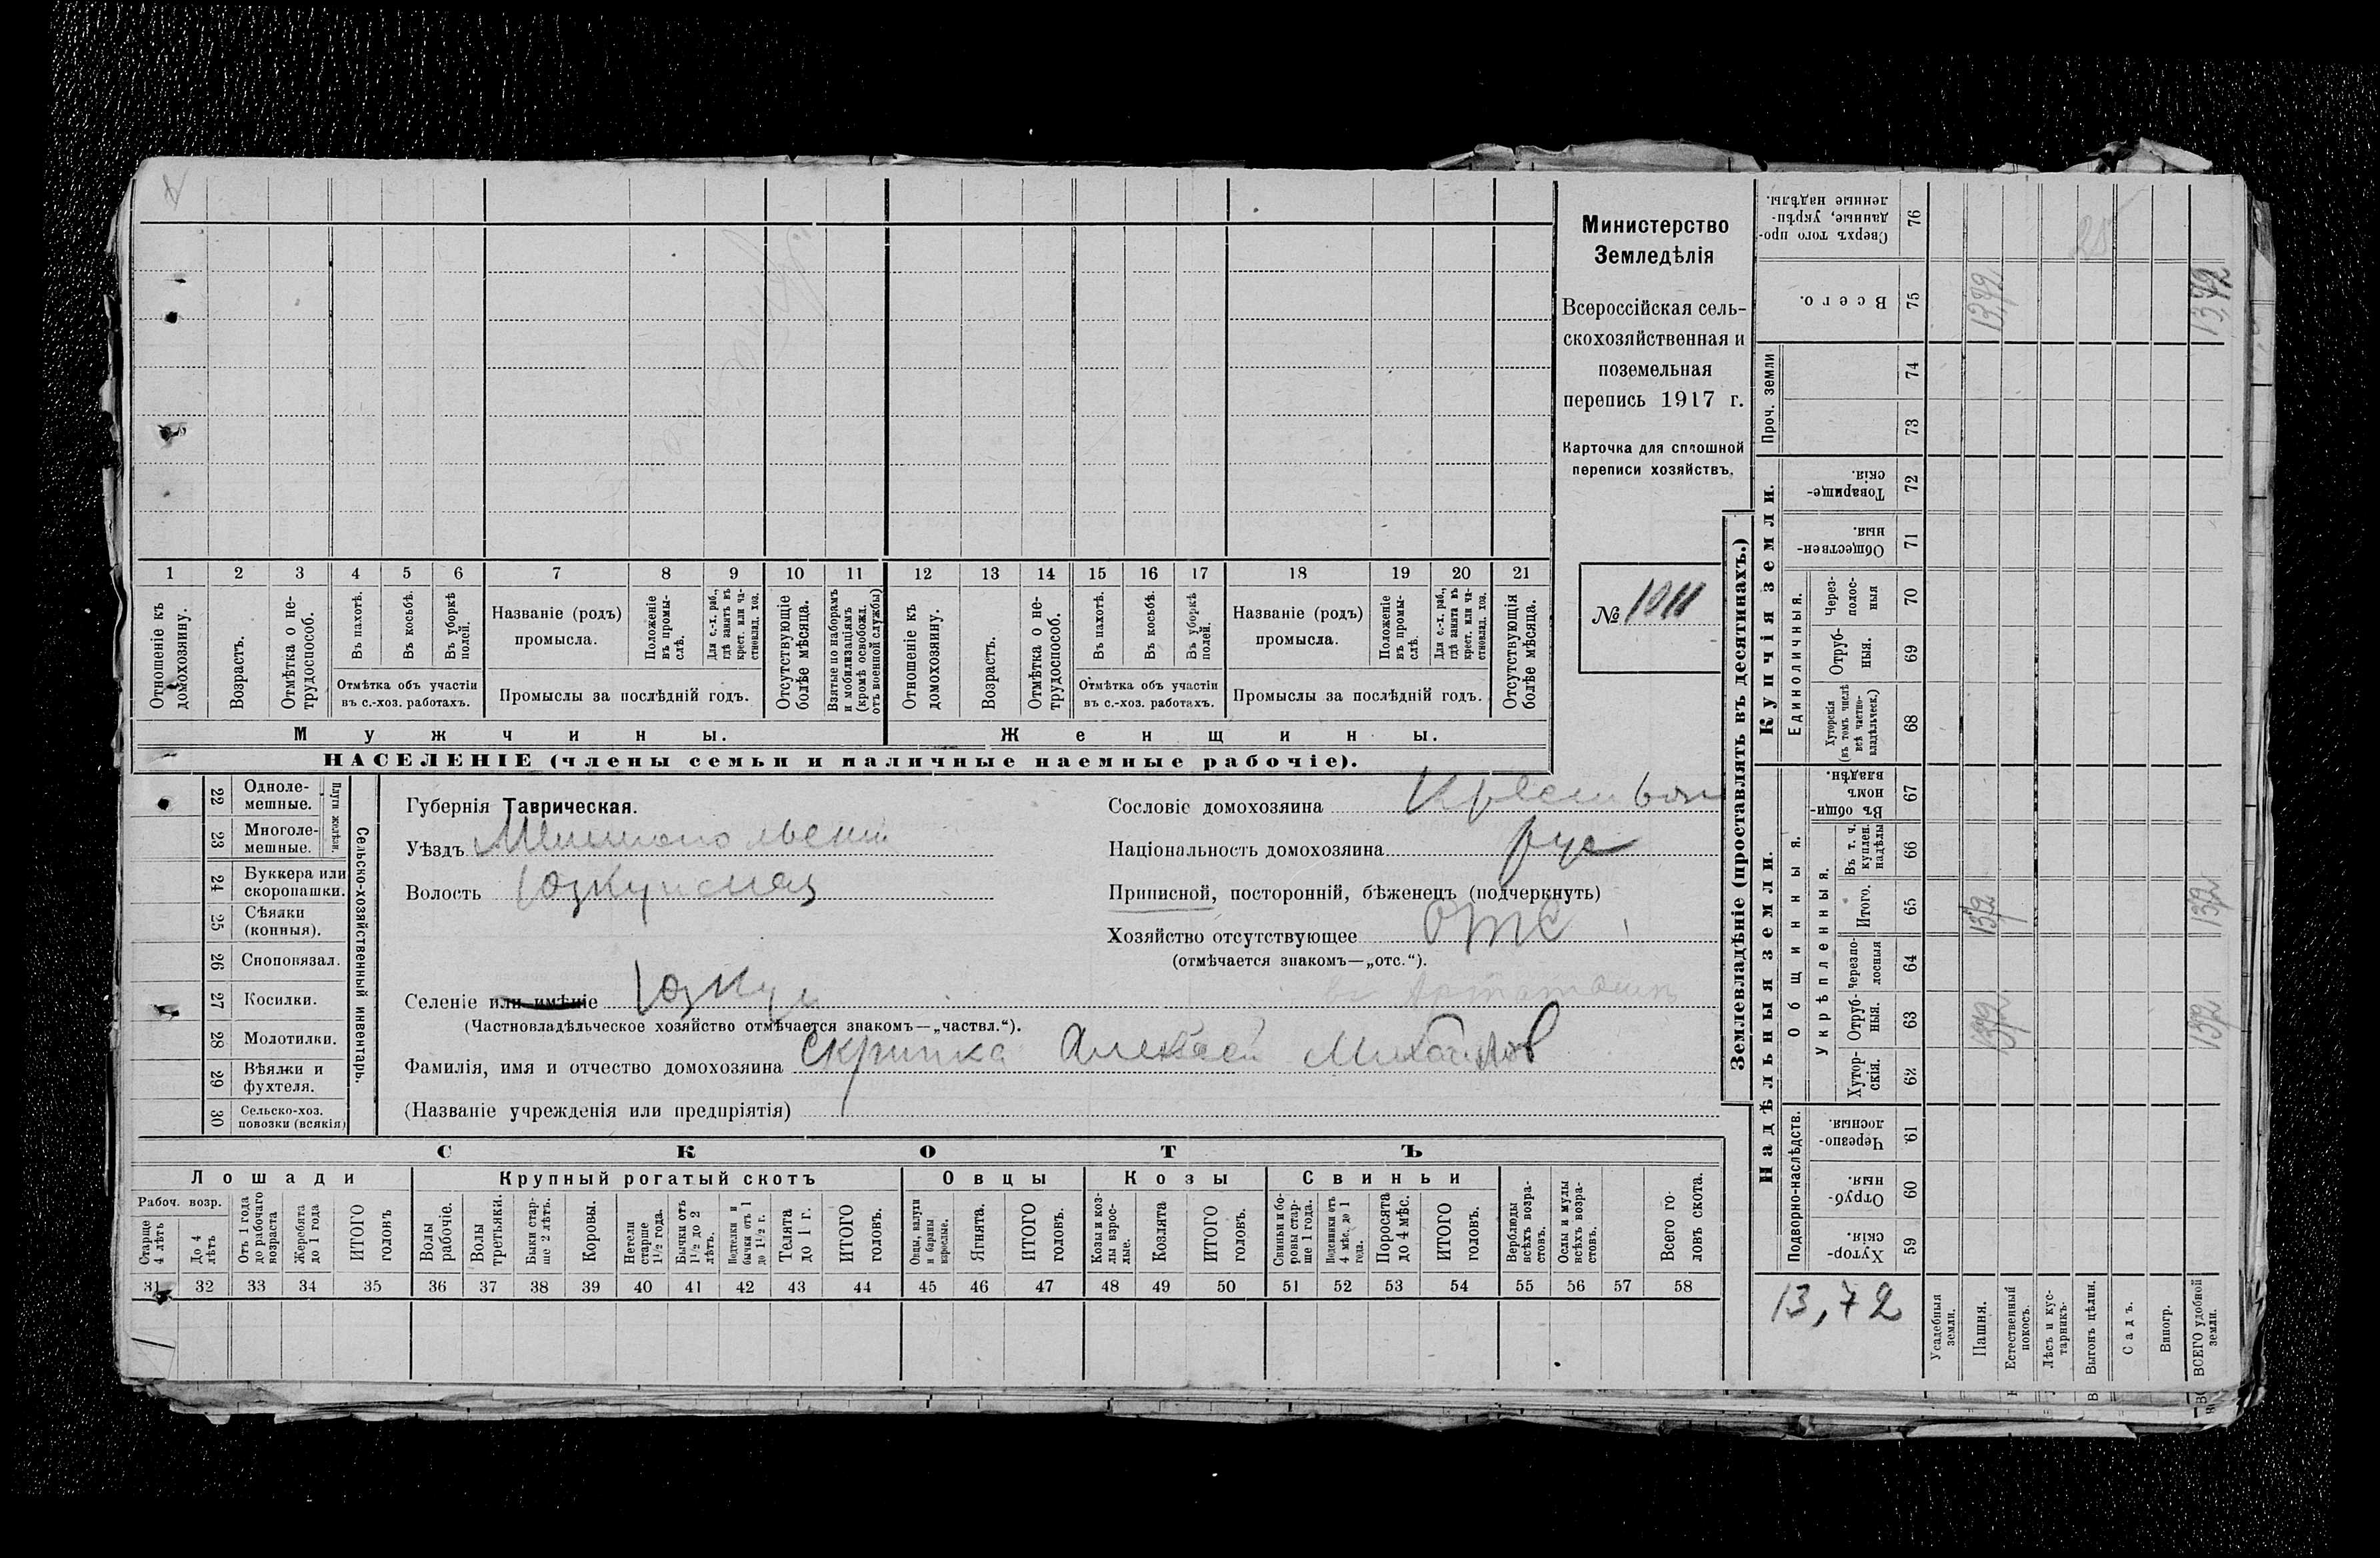 Министерство
Земледѣлія
Всероссійская сель-
скохозяйственная и
поземельная
перепись 1917 г.
Карточка для сплошной
переписи хозяйствъ.
№ 1011
1 2 3 4 5 6 7 8 9 10 11 12 13 14 15 16 17 18 19 20 21
Отношеніе къ домохозяину.
Возрастъ.
Отмѣтка о не-трудоспособ.
Въ пахотѣ.
Въ косьбѣ.
Въ уборкѣ полей.
Отмѣтка объ участіи
въ с.-хоз. работахъ.
Названіе (родъ)
промысла.
Положеніе въ промы-слѣ.
Для с.-х. раб., гдѣ занятъ въ крест. или ча-стновлад. хоз.
Промыслы за послѣдній годъ.
Отсутствующіе болѣе мѣсяца.
Взятые по наборамъ и мобилизаціямъ (кромѣ освобожд. отъ военной службы)
Отношеніе къ домохозяину.
Возрастъ.
Отмѣтка о не-трудоспособ.
Въ пахотѣ.
Въ косьбѣ.
Въ уборкѣ полей.
Отмѣтка объ участіи
въ с.-хоз. работахъ.
Названіе (родъ)
промысла.
Положеніе въ промы-слѣ.
Для с.-х. раб., гдѣ занята въ крест. или ча-стновлад. хоз.
Промыслы за послѣдній годъ.
Отсутствующія болѣе мѣсяца.
Мужчины.
Женщины.
НАСЕЛЕНІЕ (члены семьи и наличные наемные рабочіе).
22 Одноле-мешные.
23 Многоле-мешные.
Плуги желѣзн.
24 Буккера или скоропашки.
25 Сѣялки (конныя).
26 Сноповязал.
27 Косилки.
28 Молотилки.
29 Вѣялки и фухтеля.
30 Сельско-хоз. повозки (всякія)
Сельско-хозяйственный инвентарь.
Губернія Таврическая.
Уѣздъ Мелитопольскій
Волость Юзкуйская
Селеніе или имѣніе Юзкуи
(Частновладѣльческое хозяйство отмѣчается знакомъ—„частвл.“).
Фамилія, имя и отчество домохозяина Скрипка Алексѣй Михайлов
(Названіе учрежденія или предпріятія)
Сословіе домохозяина Крестьян
Національность домохозяина рус
Приписной, посторонній, бѣженецъ (подчеркнуть)
Хозяйство отсутствующее отс
(отмѣчается знакомъ—„отс.“).
СКОТЪ
Лошади
Крупный рогатый скотъ
Овцы
Козы
Свиньи
Рабоч. возр.
Старше 4 лѣтъ
До 4 лѣтъ
Отъ 1 года до рабочаго возраста
Жеребята до 1 года
ИТОГО головъ
Волы рабочіе.
Волы третьяки.
Быки стар-ше 2 лѣтъ.
Коровы.
Нетели старше 1½ года.
Бычки отъ 1½ до 2 лѣтъ.
Подтелки и бычки отъ 1 до 1½ г.
Телята до 1 г.
ИТОГО головъ.
Овцы, валухи и бараны взрослые.
Ягнята.
ИТОГО головъ.
Козы и коз-лы взрос-лые.
Козлята
ИТОГО головъ.
Свиньи и бо-ровы стар-ше 1 года.
Подсвинки отъ 4 мѣс. до 1 года.
Поросята до 4 мѣс.
ИТОГО головъ.
Верблюды всѣхъ возра-стовъ.
Ослы и мулы всѣхъ возра-стовъ.
Всего го-ловъ скота.
31 32 33 34 35 36 37 38 39 40 41 42 43 44 45 46 47 48 49 50 51 52 53 54 55 56 57 58
Землевладѣніе (проставлять въ десятинахъ.)
Надѣльныя земли.
Купчія земли.
Проч. земли
Подворно-наслѣдств.
Общинныя.
Укрѣпленныя.
Единоличныя.
59 Хутор-скія.
60 Отруб-ныя.
61 Черезпо-лосныя.
62 Хутор-скія.
63 Отруб-ныя.
64 Черезпо-лосныя
65 Итого.
66 Въ т. ч. куплен. надѣлы
67 Въ общи-номъ владѣн.
68 Хуторскія (въ томъ числѣ всѣ частно-владѣльческ.)
69 Отруб-ныя.
70 Через-полос-ныя
71 Обществен-ныя.
72 Товарище-скія.
73
74
75 Всего.
76 Сверхъ того про-данные, укрѣп-ленные надѣлы.
13,72
Усадебныя земли.
Пашня. 1372 1372 1372
Естественный покосъ.
Лѣсъ и кус-тарникъ.
Выгонъ цѣлин.
Садъ.
Виногр.
ВСЕГО удобной земли. 1372 1372 13,72